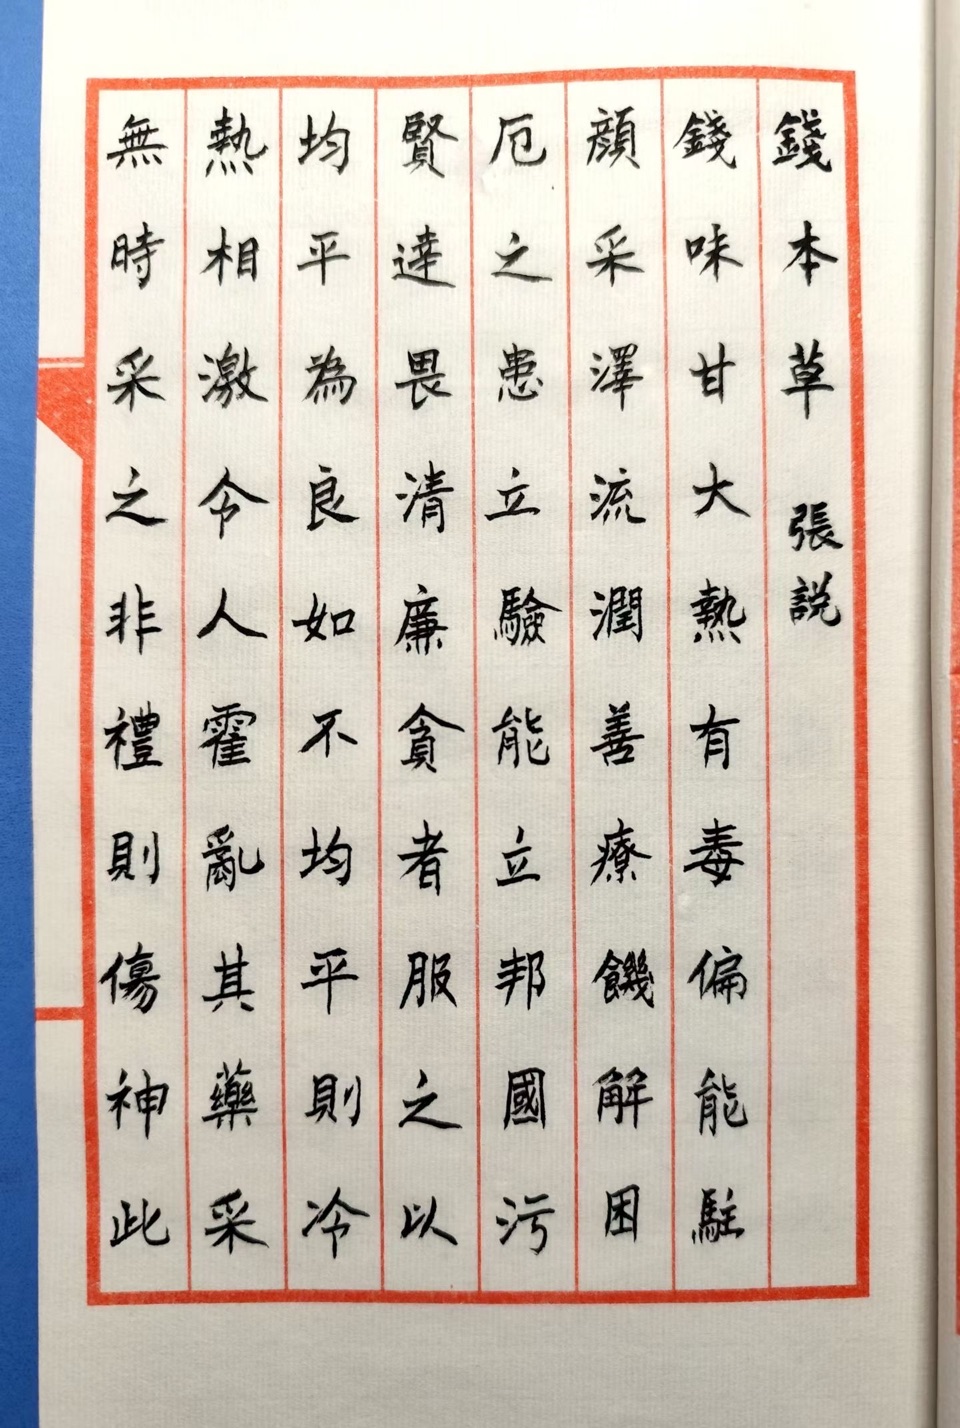 錢本草 張説
錢味甘大熱有毒偏能駐
顔采澤流潤善療饑解困
厄之患立驗能立邦國污
賢達畏清廉貪者服之以
均平為良如不均平則冷
熱相激令人霍亂其藥采
無時采之非禮則傷神此